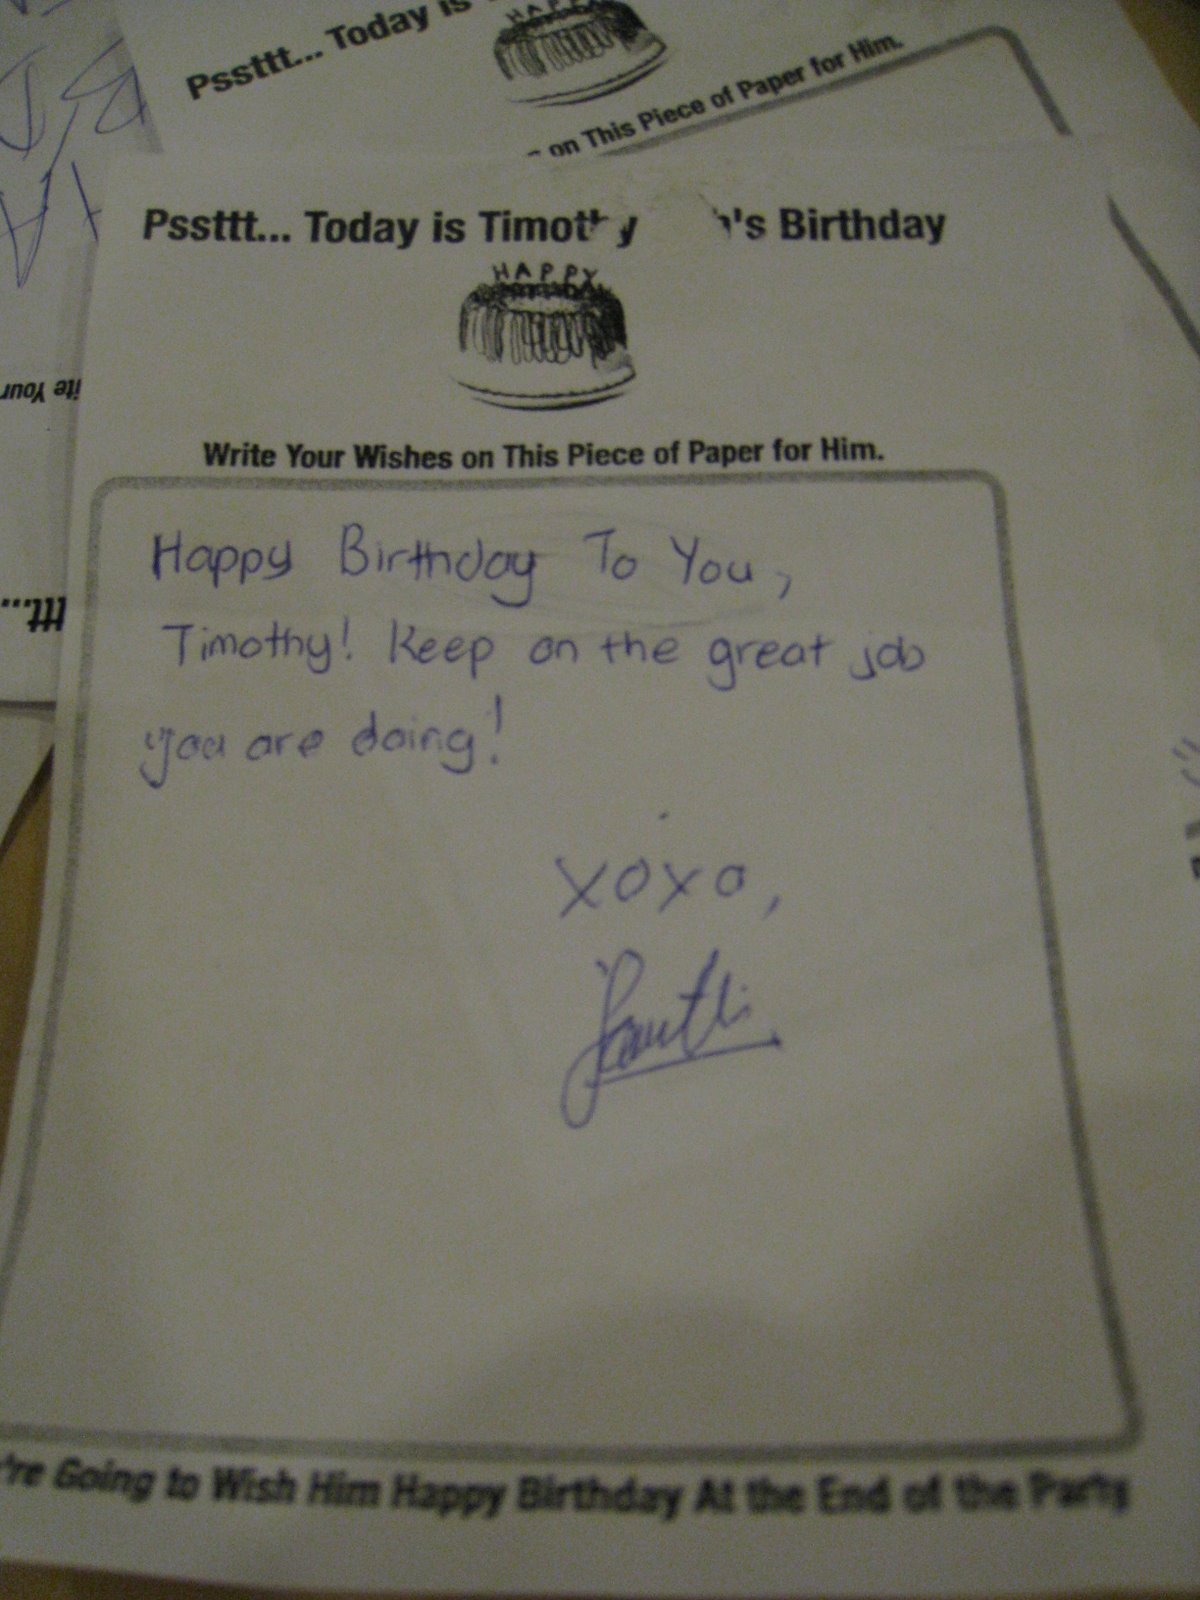 Pssttt... Today is
HAPPY
on This Piece of Paper for Him.
Pssttt... Today is Timothy 's Birthday
HAPPY
Write Your Wishes on This Piece of Paper for Him.
Happy Birthday To You,
Timothy! Keep on the great job
you are doing!
xoxo,
're Going to Wish Him Happy Birthday At the End of the Party
ite Your
ttt...